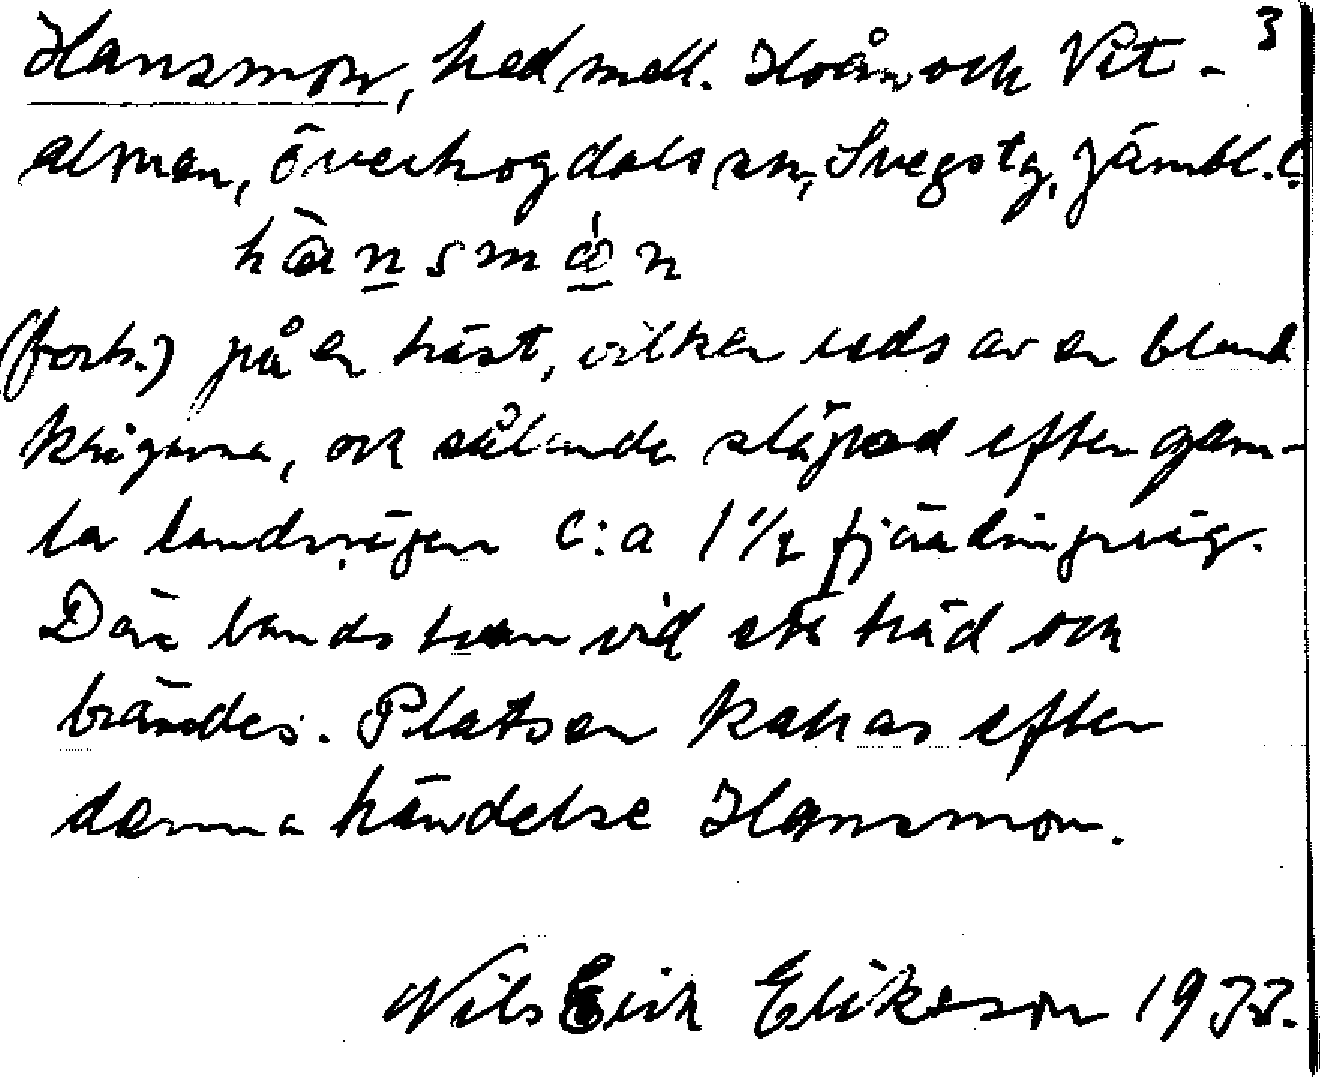 3
Hansmon, hed mell. Hoån och Vit-
alman, Överhogdals sn, Svegs tg, Jämtl. l.
hànsmǿn
(forts.) på en häst, vilken reds av en bland
krigarna, och sålunda släpad efter gam-
la landsvägen c:a 1 1/2 fjärdingsväg.
Där bands han vid ett träd och
brändes. Platsen kallas efter
denna händelse Hansmon.
Nils Erik Eriksson 1935.